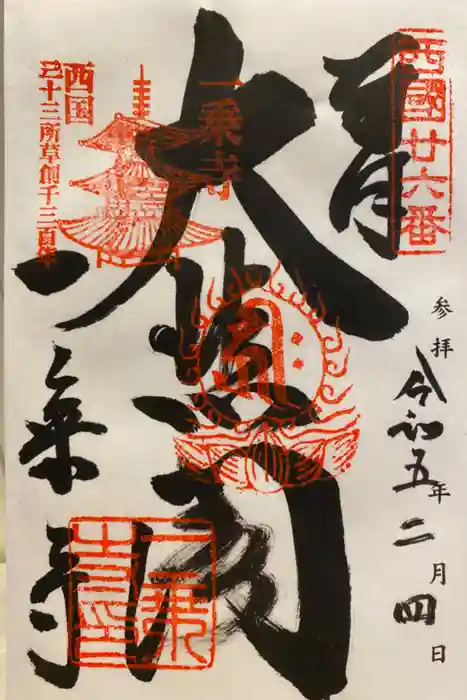 西國廿六番
参拝 令和五年二月四日
大悲閣
一乗寺
西国
三十三所草創千三百年
一乗寺
一乗寺印